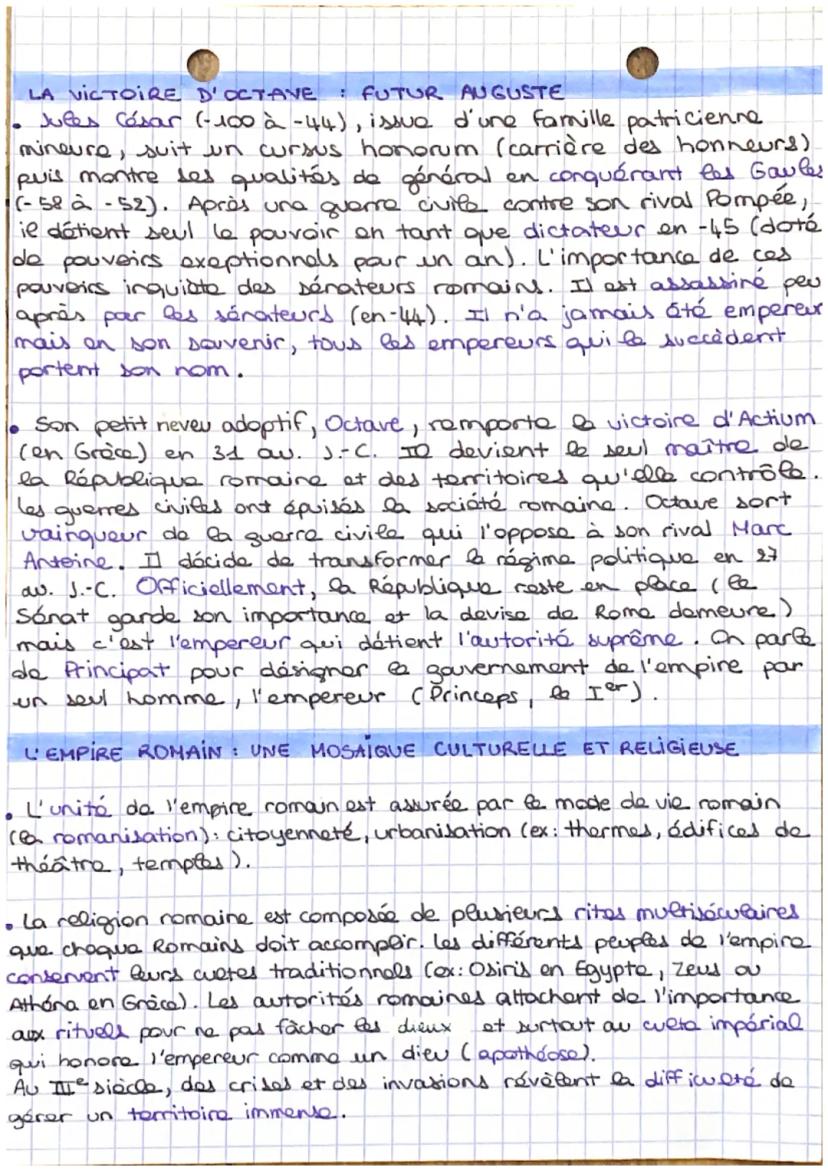 LA VICTOIRE D'OCTAVE : FUTUR AUGUSTE
• Jules César (-100 à -44), issue d'une famille patricienne
mineure, suit un cursus honorum (carrière des honneurs)
puis montre ses qualités de général en conquérant les Gaules
(-58 à -52). Après une guerre civile contre son rival Pompée,
ie détient seul le pouvoir en tant que dictateur en -45 (doté
de pouveirs exeptionnels pour un an). L'importance de ces
pouveirs inquiète des sénateurs romains. Il est assassiné peu
après par les sénateurs (en-44). Il n'a jamais été empereur
mais en son souvenir, tous les empereurs qui le succèdent
portent son nom.
• Son petit neveu adoptif, Octave, remporte la victoire d'Actium
(en Grèce) en 31 au. J.-C. Il devient le seul maître de
la République romaine et des territoires qu'elle contrôle.
Les guerres civiles ont épuisés la société romaine. Octave sort
vainqueur de la guerre civile qui l'oppose à son rival Marc
Antoine. Il décide de transformer le régime politique en 27
au. J.-C. Officiellement, la République reste en place (le
Sénat garde son importance et la devise de Rome demeure)
mais c'est l'empereur qui détient l'autorité suprême. On parle
de Principat pour désigner le gouvernement de l'empire par
un seul homme, l'empereur (Princeps, le Ier).
L'EMPIRE ROMAIN : UNE MOSAÏQUE CULTURELLE ET RELIGIEUSE
• L'unité de l'empire romain est assurée par le mode de vie romain
(la romanisation): citoyenneté, urbanisation (ex: thermes, édifices de
théâtre, temples).
• La religion romaine est composée de plusieurs rites multiséculaires
que chaque Romains doit accomplir. Les différents peuples de l'empire
conservent leurs cultes traditionnels (ex: Osiris en Egypte, Zeus ou
Athéna en Grèce). Les autorités romaines attachent de l'importance
aux rituels pour ne pas fâcher les dieux et surtout au culte impérial
qui honore l'empereur comme un dieu (apothéose).
Au IIIe siècle, des crises et des invasions révèlent la difficulté de
gérer un territoire immense.